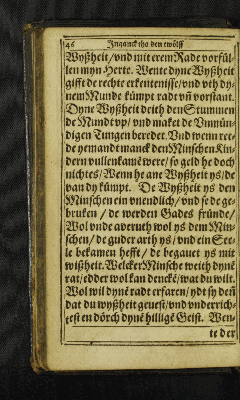 46 Inganck tho den twölff
Wyßheit / vnd mit erem Rade vorfül-
len myn Herte. Wente dyne Wyßheit
gifft de rechte erkentenisse / vnd vth dy-
nem Munde kümpt radt vñ vorstant.
Dyne Wyßheit deith den Stummen
de Mundt vp / vnd maket de Vnmün-
digen Tungen beredet. Vnd wenn ree-
de yemandt manck den Minschen Kin-
dern vullenkamē were / so geld he doch
nichtes / Wenn he ane Wyßheit ys / de
van dy kümpt. De Wyßheit ys den
Minschen ein vnendlich / vnd se de ge-
bruken / de werden Gades fründe /
Wol vnde aueruth wol ys dem Min-
schen / de guder arth ys / vnd ein See-
le bekamen hefft / de begauet ys mit
wißheit. Welcker Minsche weith dynē
rat / edder wol kan denckē / wat du wilt.
Wol wil dynē radt erfaren / ydt sy denn
dat du wyßheit geuest / vnd vnderrich-
test en dörch dynē hilligē Geist. Wen-
te der